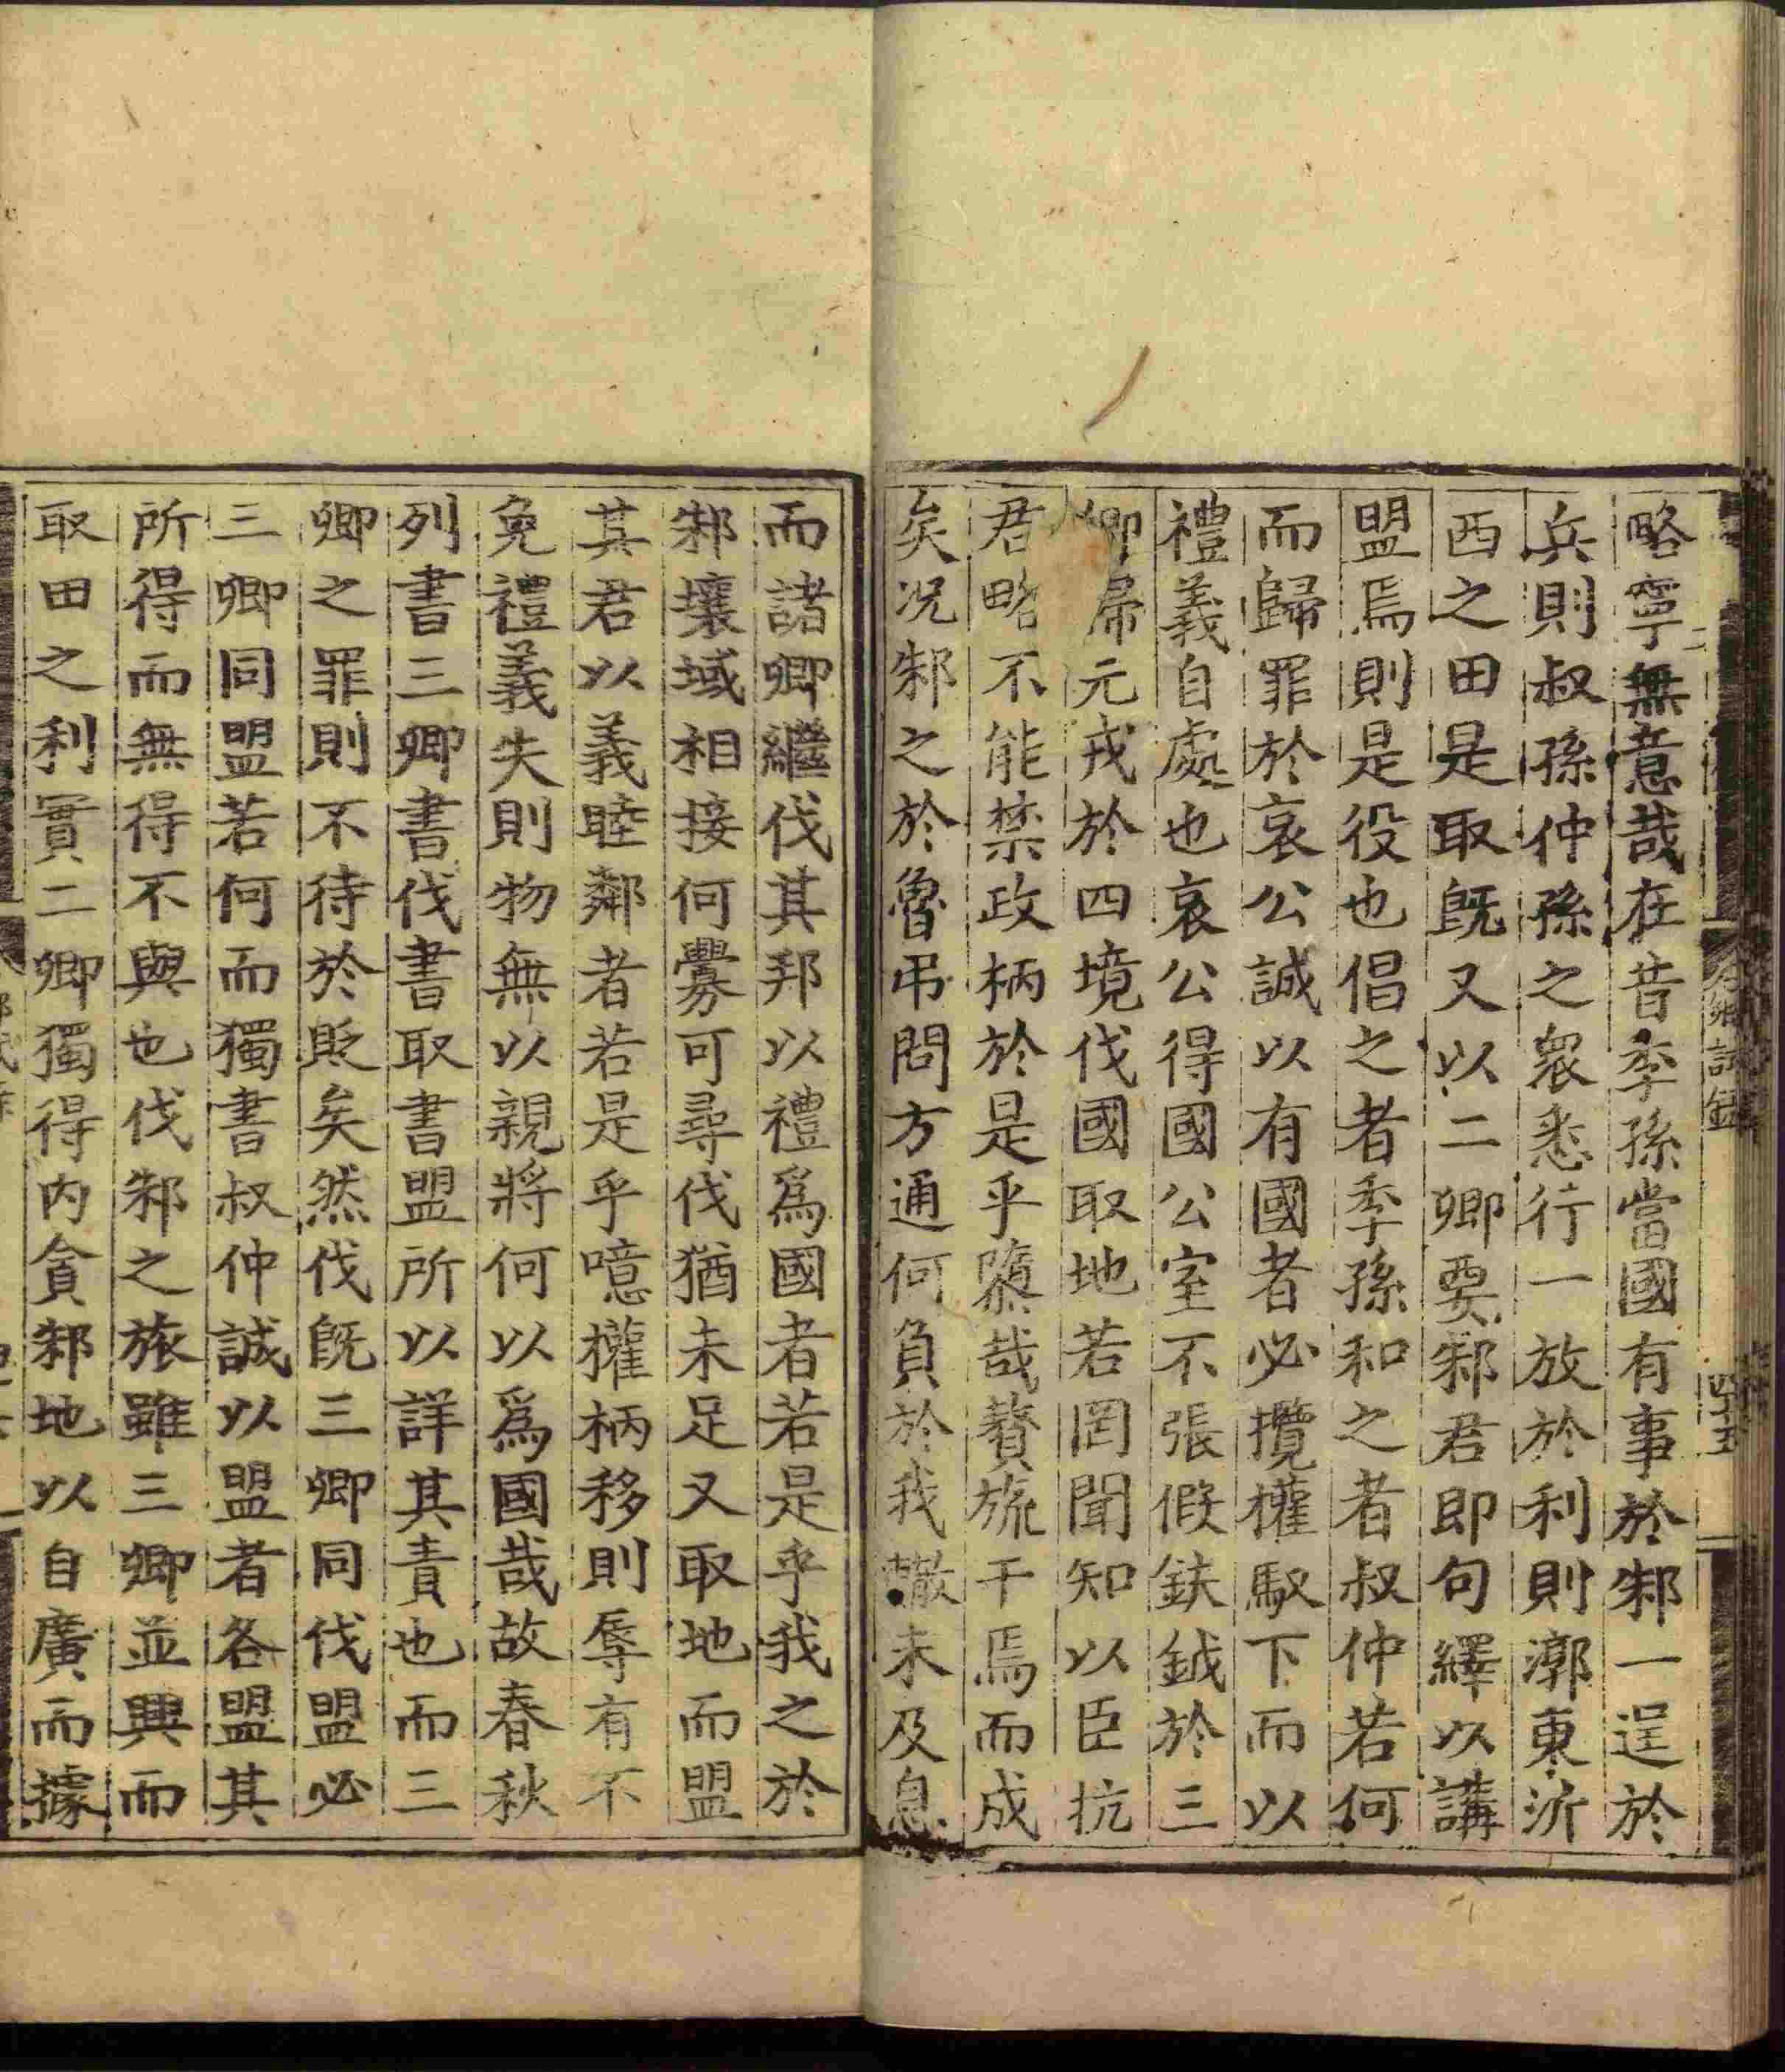 略寧無意哉在昔季孫當國有事於邾一逞於
兵則叔孫仲孫之衆悉行一放於利則漷東沂
西之田是取旣又以二卿要邾君即句繹以講
盟焉則是役也倡之者季孫和之者叔仲若何
而歸罪於哀公誠以有國者必攬權馭下而以
禮義自處也哀公得國公室不張假鈇鉞於三
卿歸元戎於四境伐國取地若罔聞知以臣抗
君略不能禁政柄於是乎隳哉贅旒干焉而成
矣况邾之於魯弔問方通何負於我轍未及息
而諸卿繼伐其邦以禮爲國者若是乎我之於
邾壤域相接何釁可尋伐猶未足又取地而盟
其君以義睦鄰者若是乎噫權柄移則辱有不
免禮義失則物無以親將何以爲國哉故春秋
列書三卿書伐書取書盟所以詳其責也而三
卿之罪則不待於貶矣然伐旣三卿同伐盟必
三卿同盟若何而獨書叔仲誠以盟者各盟其
所得而無得不與也伐邾之旅雖三卿並興而
取田之利實二卿獨得内貪邾地以自廣而據